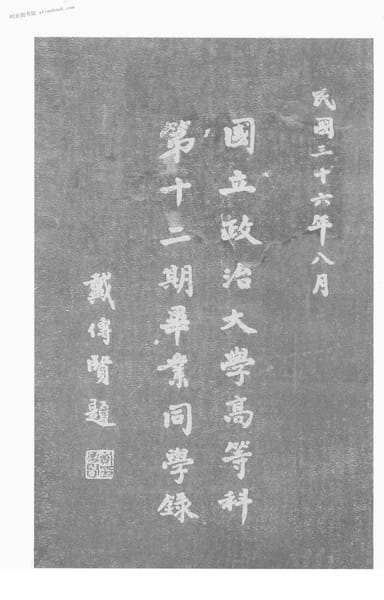 民國三十六年八月
國立政治大學高等科
第十二期畢業同學錄
戴傳賢題